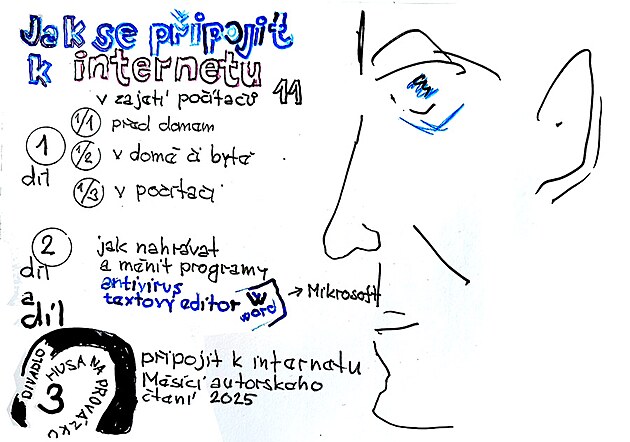 Jak se připojit
k internetu
v zajetí počítačů 11
1 díl
1/1 před domem
1/2 v domě či bytě
1/3 v počítači
2 díl
jak nahrávat
a měnit programy
antivirus
textový editor W word → Mikrosoft
a díl
3
DIVADLO HUSA NA PROVÁZKU
připojit k internetu
Měsíci autorského
čtení 2025